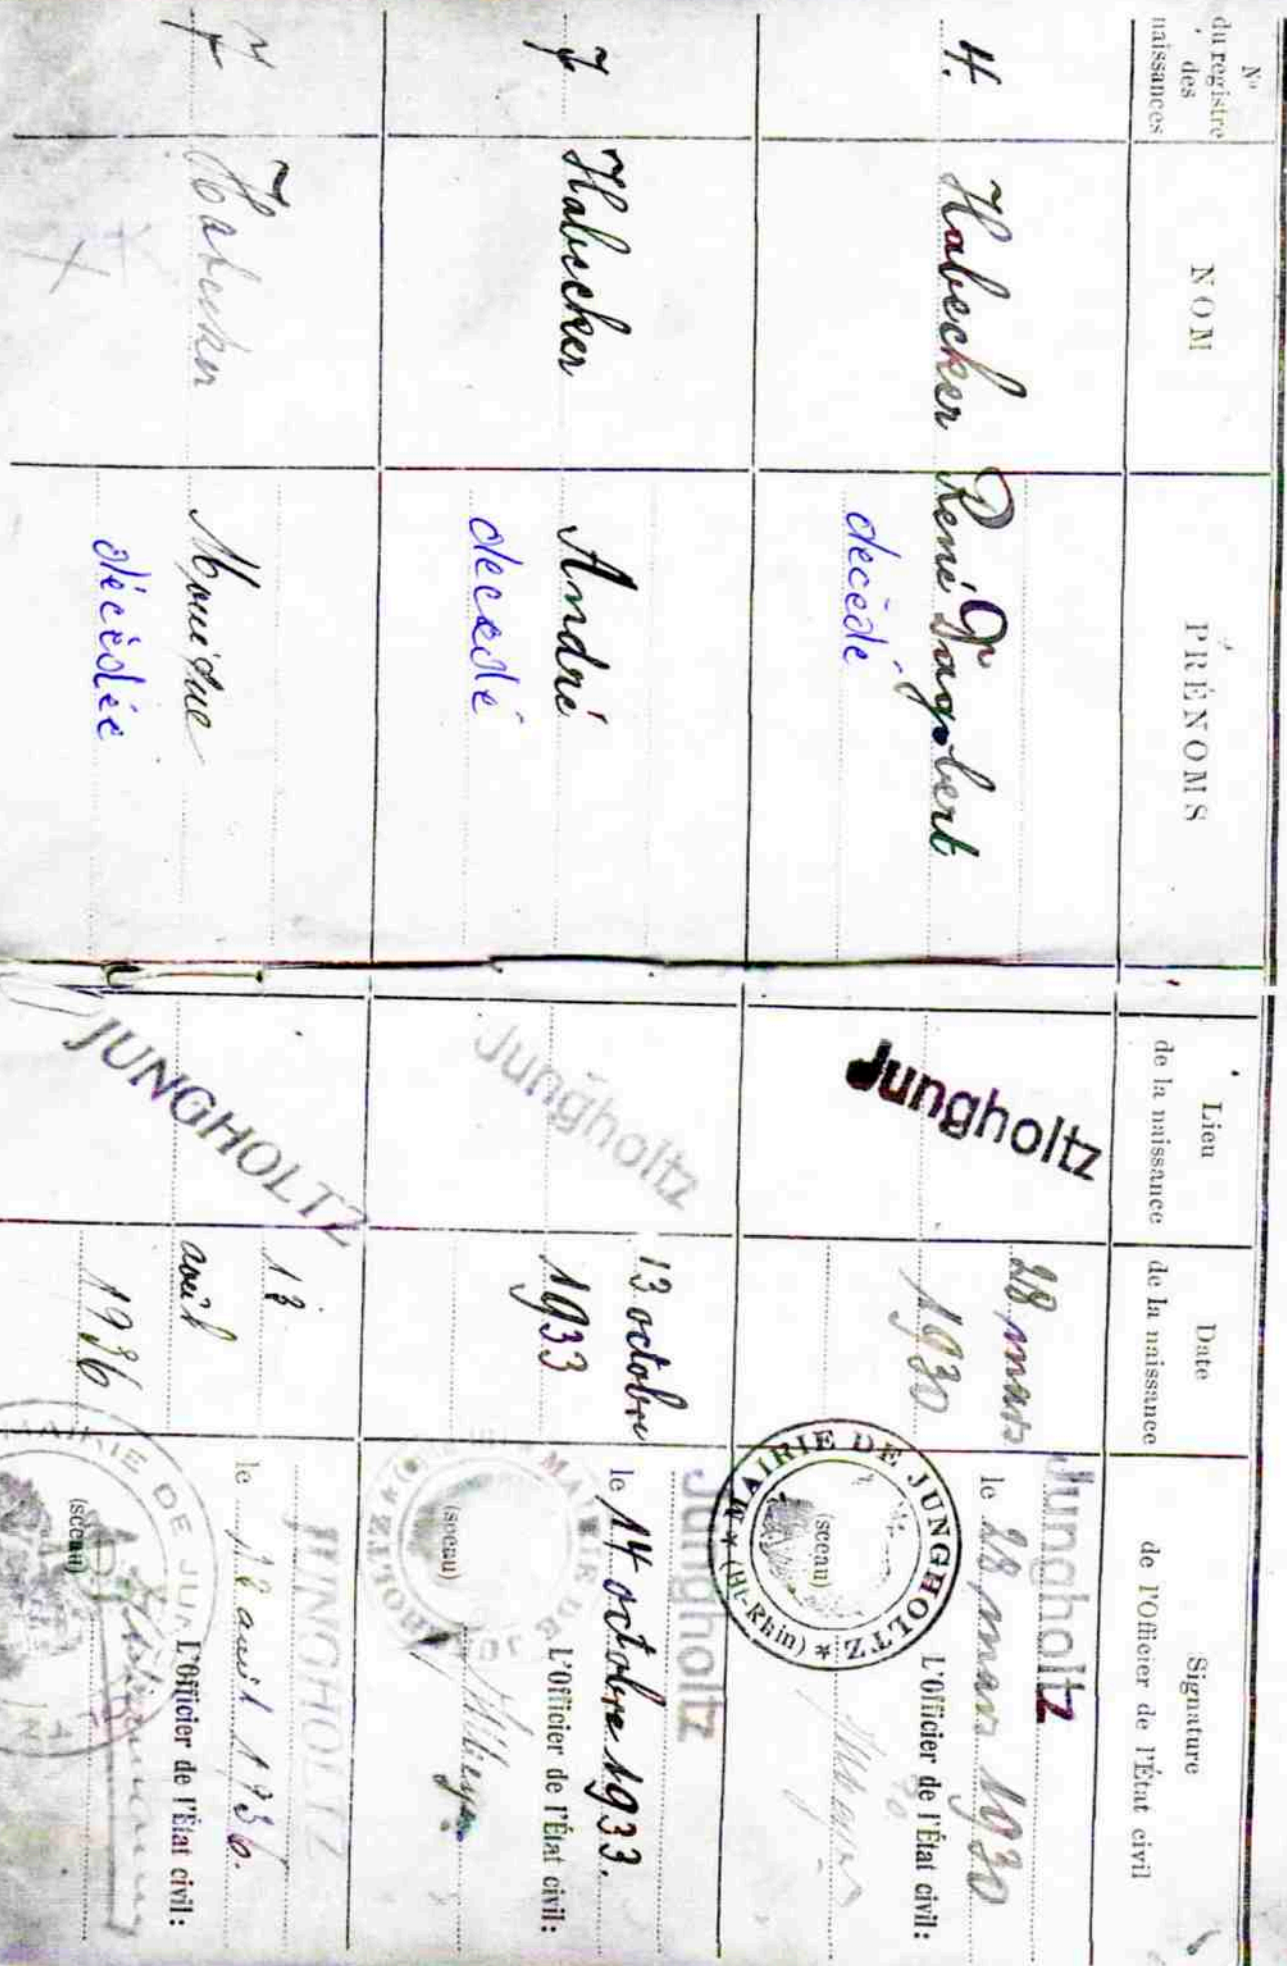 N° du registre des naissances
NOM
PRÉNOMS
Lieu de la naissance
Date de la naissance
Signature de l'Officier de l'État civil
4.
Habecker
René Dagobert
décèdé
Jungholtz
28 mars
1930
Jungholtz
le 28 mars 1930
L'Officier de l'État civil:
(sceau)
MAIRIE DE JUNGHOLTZ
* (Ht-Rhin) *
7
Habecker
André
decedé
Jungholtz
13 octobre
1933
Jungholtz
le 14 octobre 1933.
L'Officier de l'État civil:
(sceau)
MAIRIE DE JUNGHOLTZ
7
Habecker
Monique
décèdée
JUNGHOLTZ
avril
1936
JUNGHOLTZ
le avril 1936.
L'Officier de l'État civil:
(sceau)
MAIRIE DE JUN